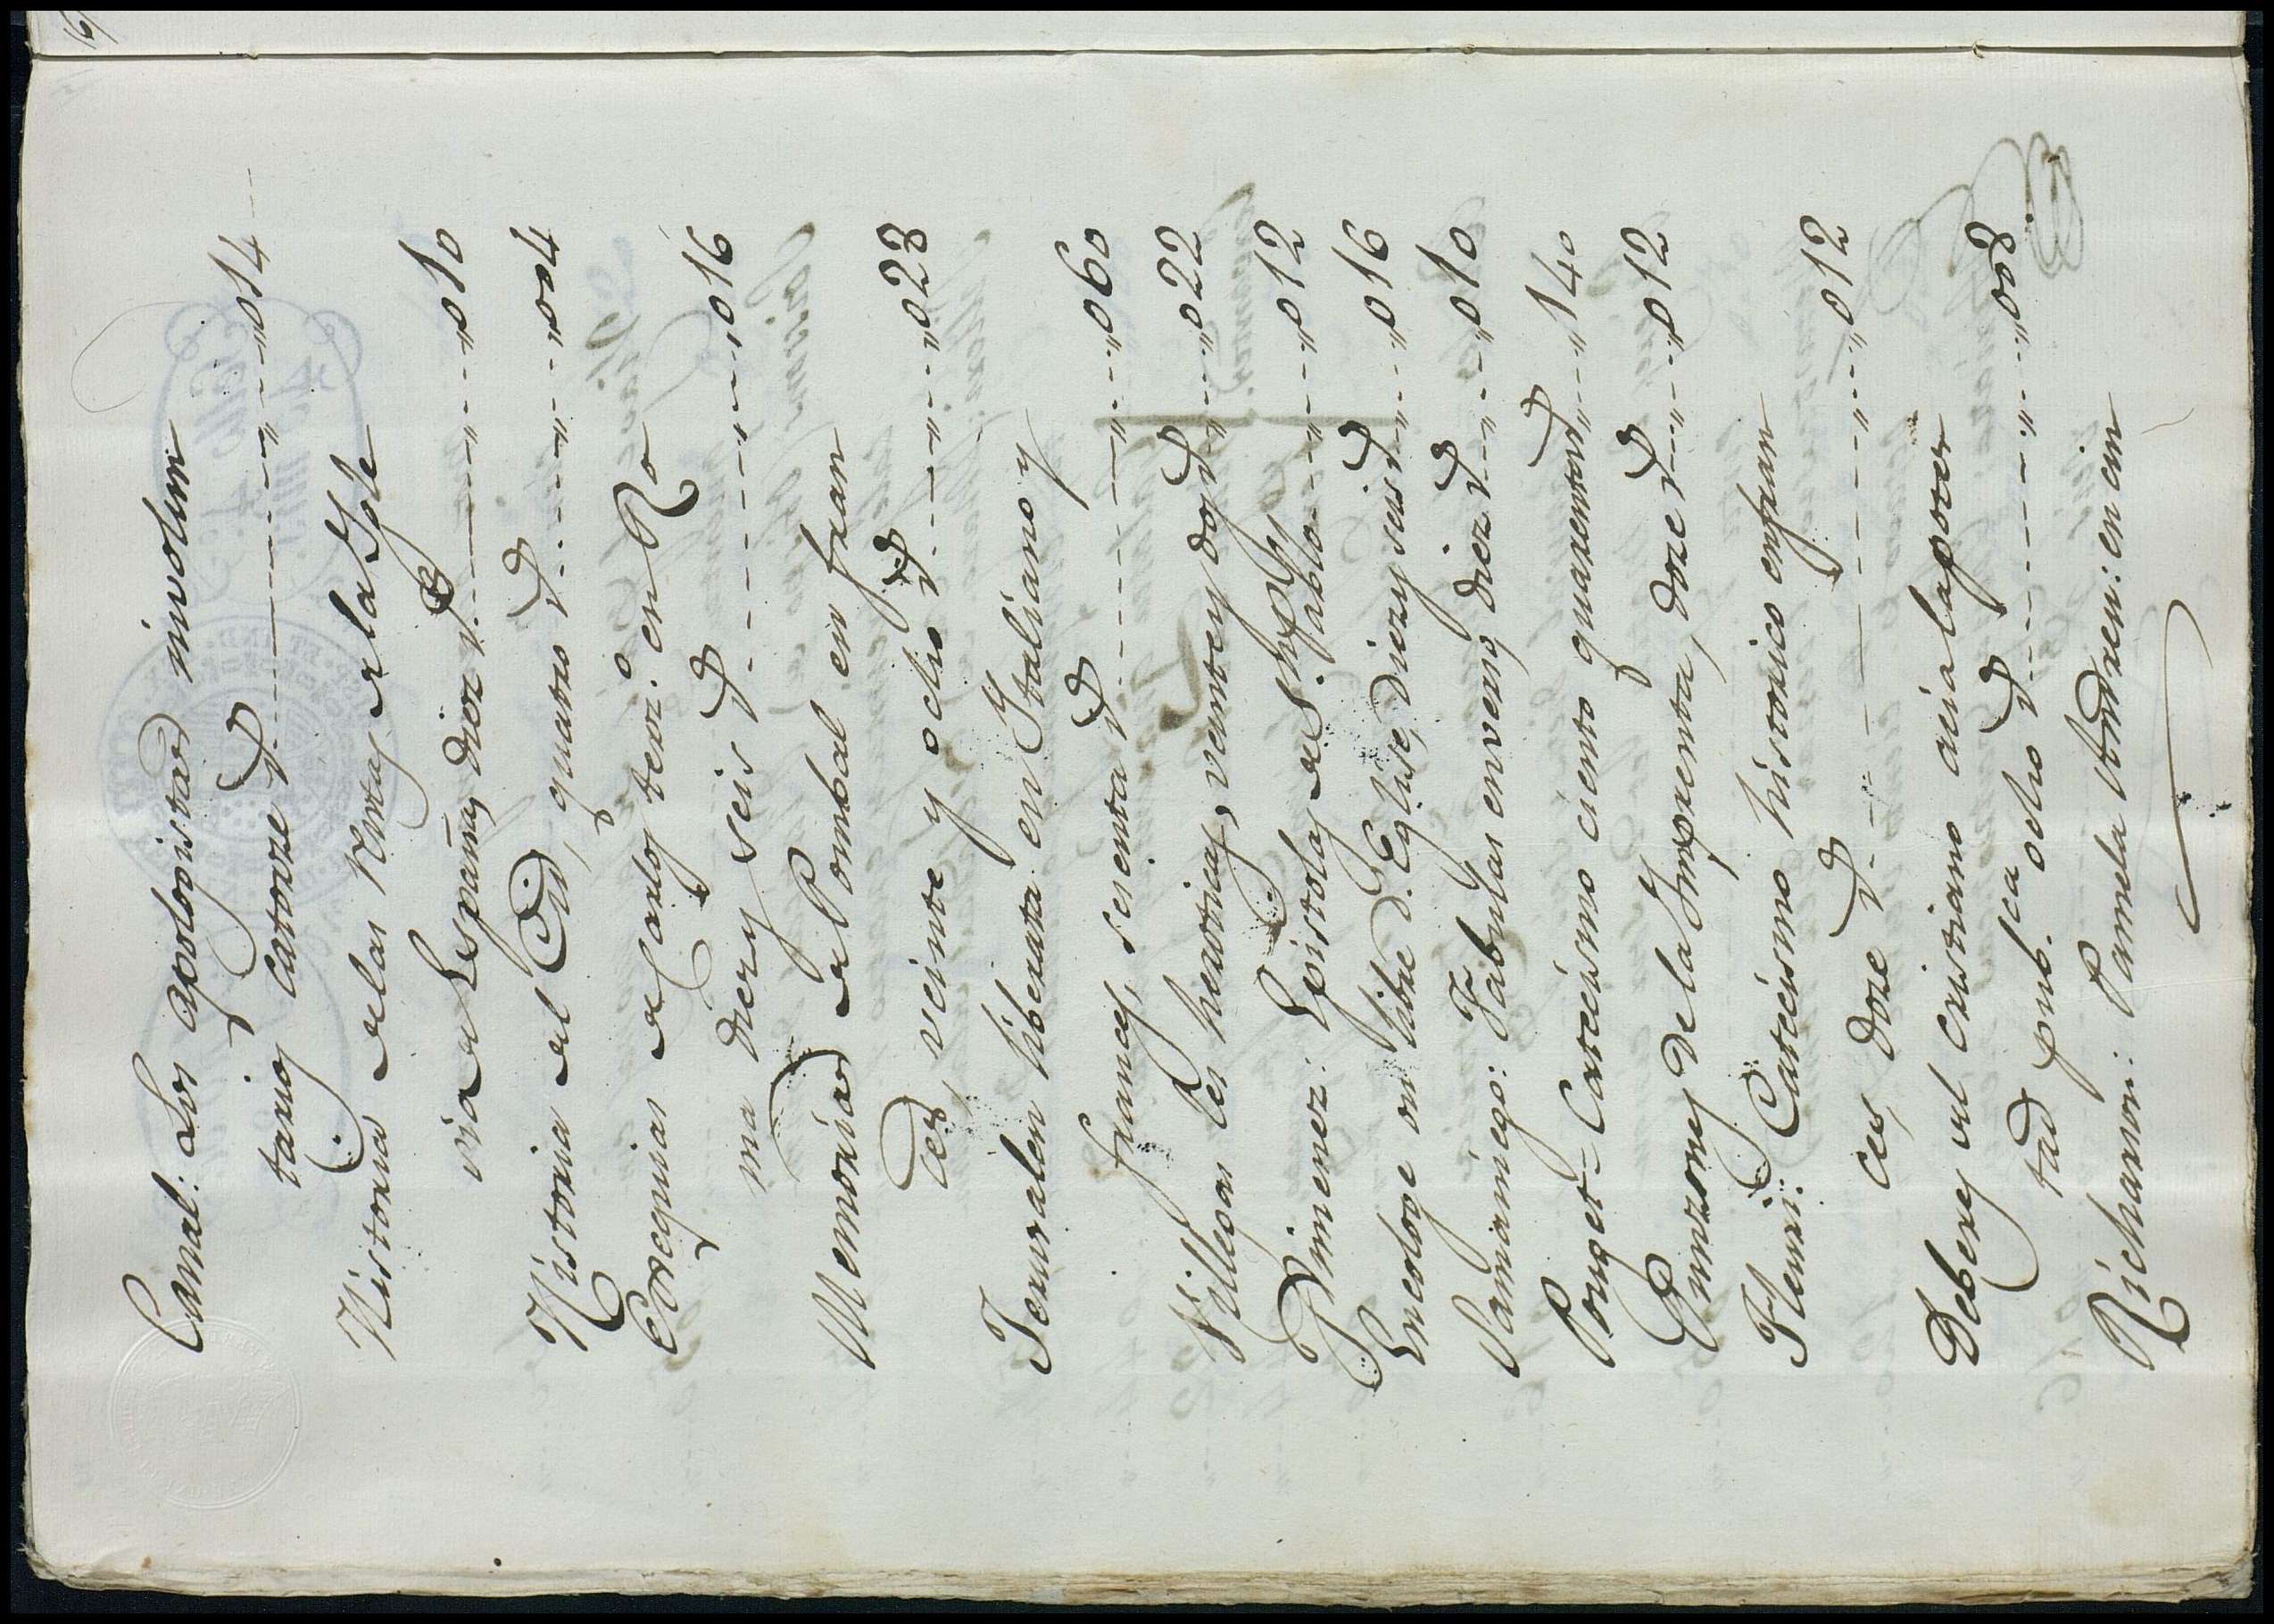 Canal: Los apologistas involun
tarios catorze r.---------014
Historia de las Rentas de la Ygle
sia de España, diez r.-------010
Historia del Cid, quatro r.-------004
Exsequias de Carlos terz.o en Ro
ma diez y seis r.---------016
Memorias de Pombal en fran
ces, veinte y ocho r.-------028
Jerusalen liberata en Italiano y
frances, sesenta r.---------060
Villegas les heroticas, veintey dos r.----022
Ximenez: Epistolas de S. Pablo------012
Eucologe ou libre d. Eglise, diez y seis r.----016
Samaniego: Fabulas en verso, diez r.----010
Pouget- Catecismo ciento quarenta r.----140
Punzones de la Imprenta, doze r.----012
Fleuri: Catecismo historico enfran
ces, doze r.---------012
Deberes del cristiano acia la potes
tad pub.ca ocho r.---------008
Richarson: Pamela Andreu: en cin